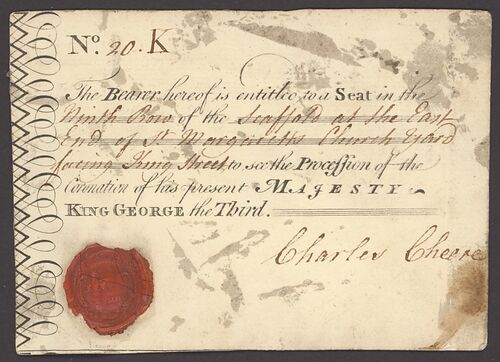 No. 20. K
The Bearer hereof is entitled to a Seat in the
Ninth Row of the Scaffold at the East
End of St Margaretts Church Yard
facing King Street to see the Procession of the
Coronation of his present MAJESTY
KING GEORGE the Third.
Charles Cheere